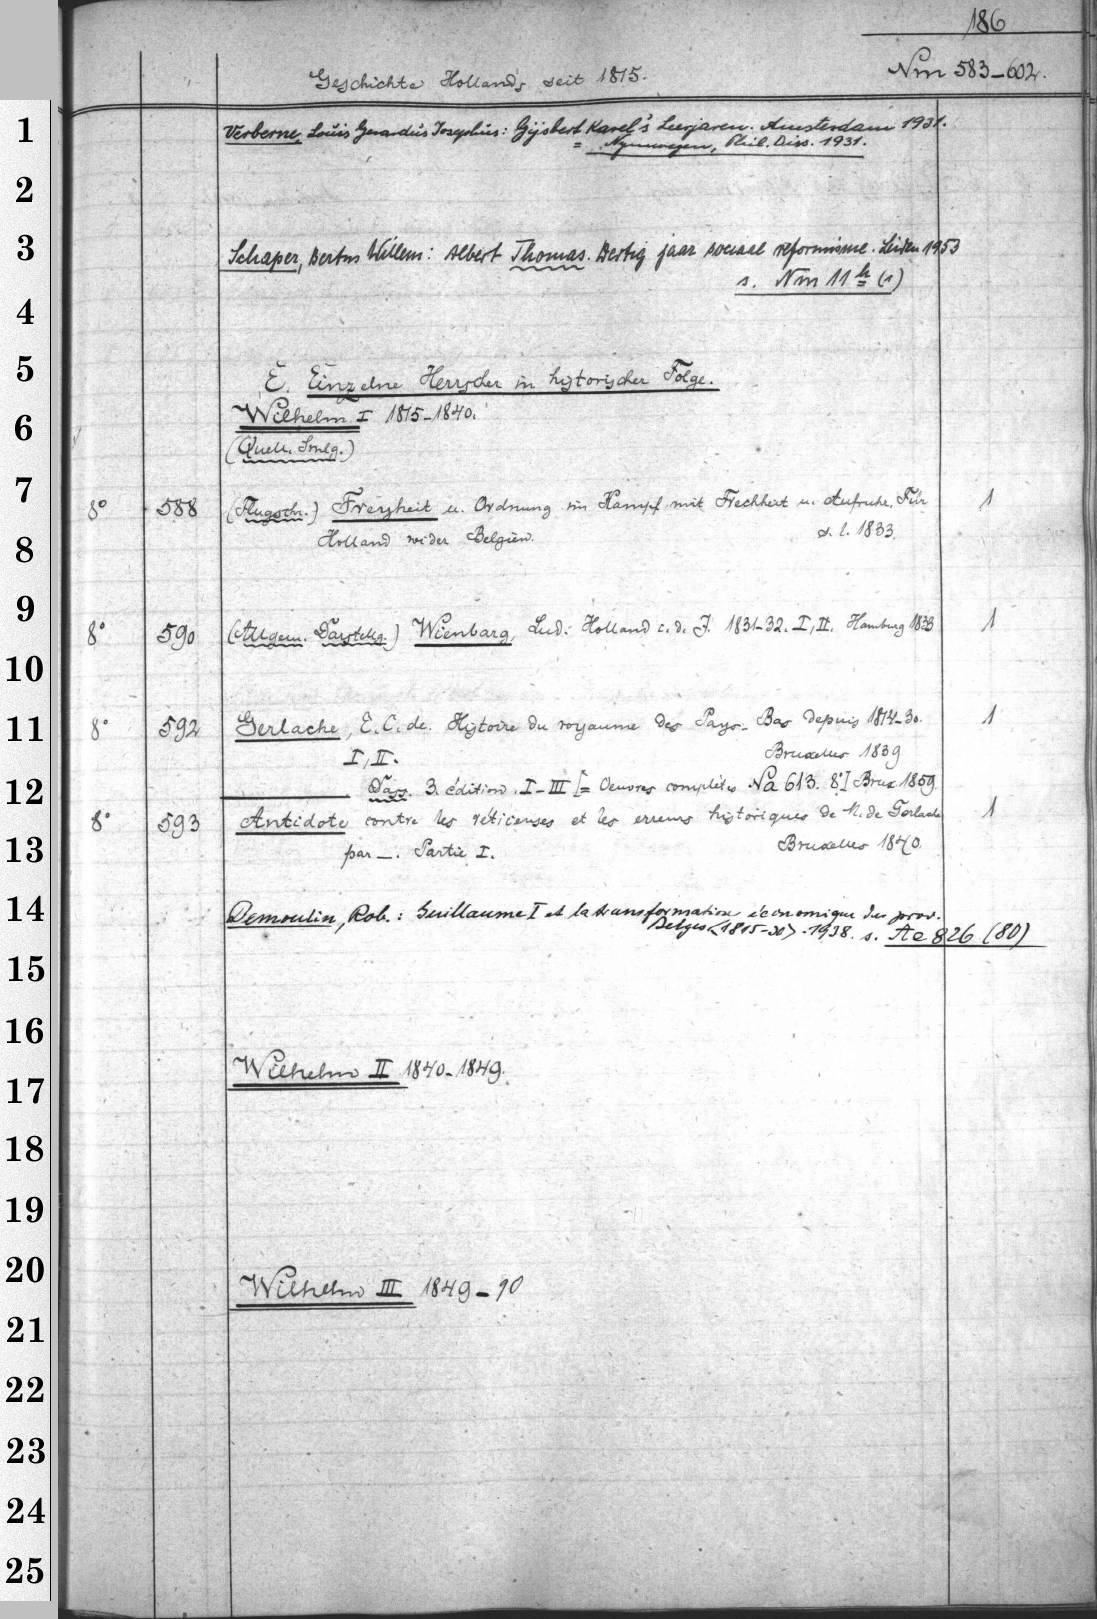 186
Geschichte Hollands seit 1815. Nm 583-602.
1 Verberne, Louis Gerardus Josephus: Gijsbert Karel's Leerjaren. Amsterdam 1931.
= Nymwegen, Phil. Diss. 1931.
2
3 Schaper, Bertus Willem: Albert Thomas. Dertig jaar sociaal reformisme. Leiden 1953
s. Nm 11 h (1)
4
5 E. Einzelne Herrscher in historischer Folge.
6 Wilhelm I 1815-1840.
(Quell. Smlg.)
7 8° 588 (Flugschr.) Freyheit u. Ordnung im Kampf mit Frechheit u. Aufruhr. Für 1
8 Holland wider Belgien. s. l. 1833.
9 8° 590 (Allgem. Darstellg.) Wienbarg, Lud.: Holland i. d. J. 1831-32. I, II. Hamburg 1833 1
10
11 8° 592 Gerlache, E. C. de. Histoire du royaume des Pays-Bas depuis 1814-30. 1
I, II. Bruxelles 1839
12 Dass. 3. édition. I-III [= Oeuvres complètes Na 613. 8°] Brux. 1859.
8° 593 Antidote contre les réticenses et les erreurs historiques de M. de Gerlache 1
13 par —. Partie I. Bruxelles 1840.
14 Demoulin, Rob.: Guillaume I et la transformation économique des prov.
Belges <1815-30>. 1938. s. Ae 826 (80)
15
16
17 Wilhelm II 1840-1849.
18
19
20 Wilhelm III 1849-90
21
22
23
24
25